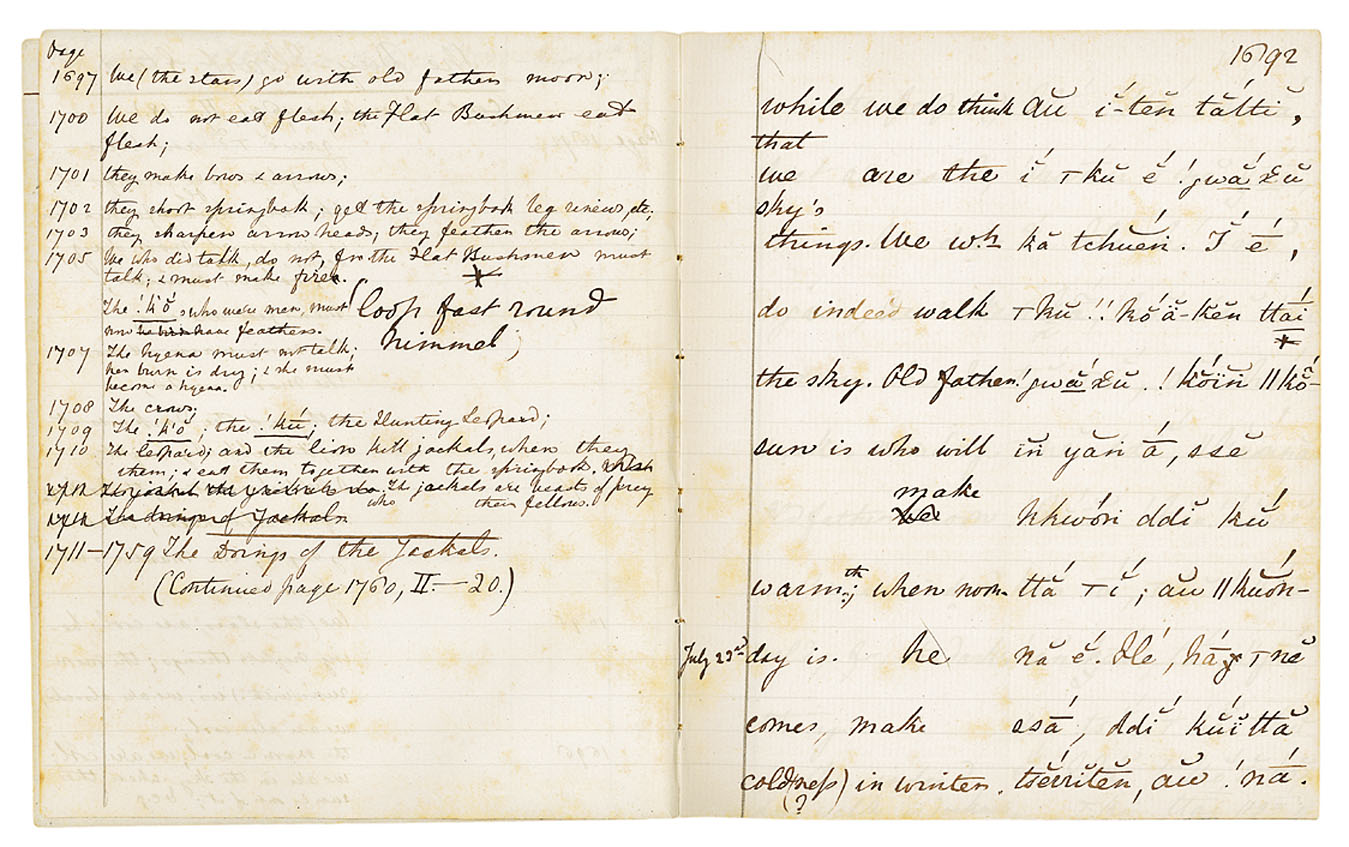 Page
1697 We (the stars) go with old father moon;
1700 We do not eat flesh; the Flat Bushmen eat
flesh;
1701 they make bows & arrows;
1702 they shoot springbok; get the springbok leg sinews, etc;
1703 they sharpen arrow heads; they feather the arrows;
1705 We who did talk, do not, for the Flat Bushmen must
talk; & must make fire.
The !kŏ́, who were men, must
now have feathers.
loop fast round
himmel;
1707 The hyena must not talk;
her burn is dry; & she must
become a hyena.
1708 The crows;
1709 The !kŏ́; the !kū́; the Hunting Leopard;
1710 The leopard; and the lion kill jackals, when they
them; & eat them together with the springbok.
The jackals are beasts of prey
who their fellows.
The doings of Jackals
1711–1759 The Doings of the Jackals.
(Continued page 1760, II.—20.)
1692
while we do think aŭ ĭ-tĕn tátti,
that
we are the ĭ́ ⊤kŭ é !gwā́xŭ
sky's
things. We wh kă tchuḗn. Ĭ́ ḗ,
do indeed walk ⊤kŭ !!kŏ́ ă-kĕn ttā́i
the sky. Old father !gwā́xŭ. !kŏ́ïn ||kŏ̄́-
sun is who will ĭn yăn ā́, ssĕ
make
be hhwŏ́n ddĭ kŭ́
warmth; when noon- ttắ ⊤ĭ́; aŭ ||kŭŏ́n-
July 23rd day is. he nă é. Hé, hā́ ⊤nĕ
comes, make ssā́, ddĭ́ kŭ́ĭ ttă
cold(ness) in winter. tsĕ́rrĭtĕn, aŭ !nā́.
(?)